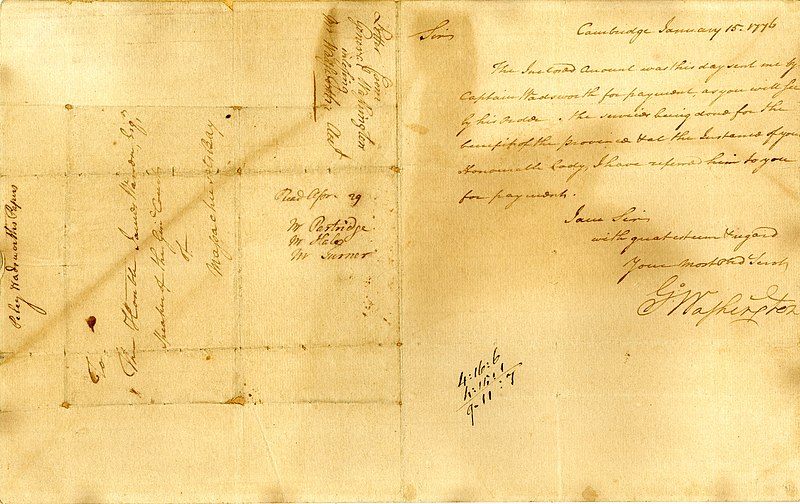 Peleg Wadsworths Papers
To
The Honble James Warren Esqr
Speaker of the Genl Court
of
Massachusetts Bay
Letter from
General Washington
Read Apr 29
Mr Partridge
Mr Hale
Mr Turner
Cambridge January 15. 1776
Sir
The Inclosed Amount was this day sent me by
Captain Wadsworth for payment, as you will see
by his Order. The services being done for the
benefit of the province & at the Instance of your
Honourable Body, I have referred him to you
for payment.
I am Sir
with great esteem & regard
Your most Obd Servt
Go Washington
4:16:6
4:15:1
9-11:7